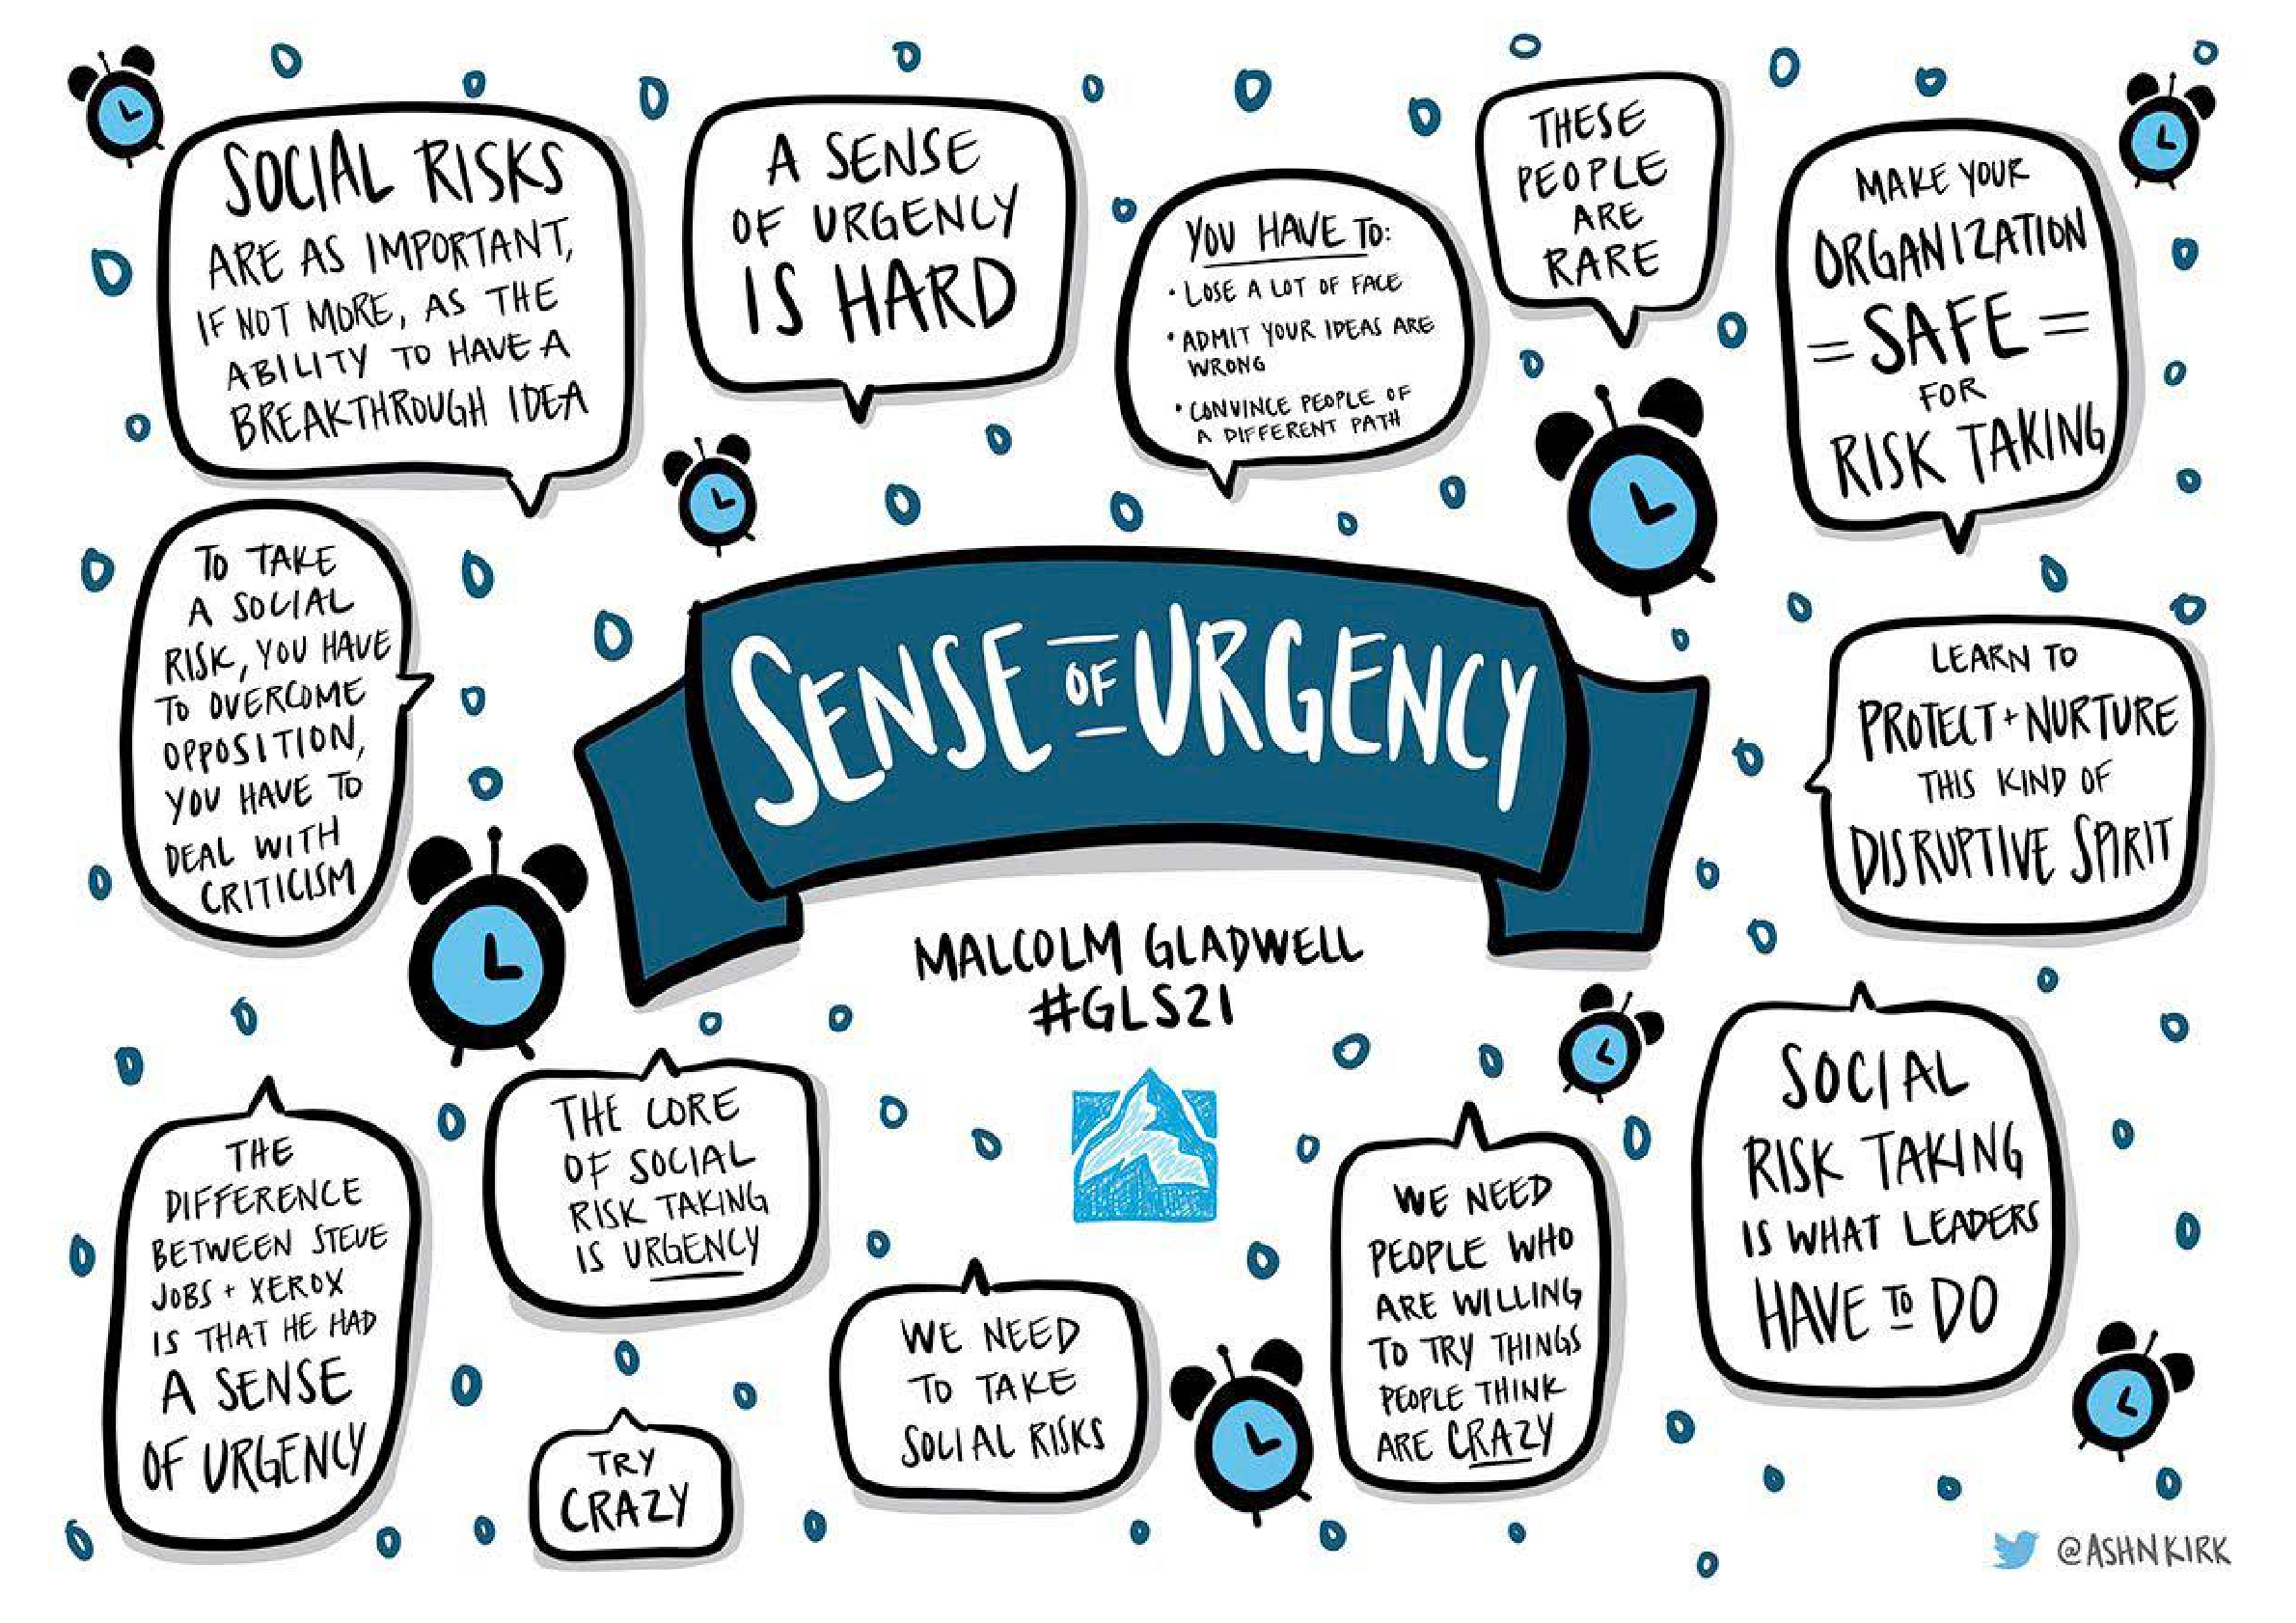 SOCIAL RISKS
ARE AS IMPORTANT,
IF NOT MORE, AS THE
ABILITY TO HAVE A
BREAKTHROUGH IDEA
A SENSE
OF URGENCY
IS HARD
YOU HAVE TO:
• LOSE A LOT OF FACE
• ADMIT YOUR IDEAS ARE
WRONG
• CONVINCE PEOPLE OF
A DIFFERENT PATH
THESE
PEOPLE
ARE
RARE
MAKE YOUR
ORGANIZATION
= SAFE =
FOR
RISK TAKING
TO TAKE
A SOCIAL
RISK, YOU HAVE
TO OVERCOME
OPPOSITION,
YOU HAVE TO
DEAL WITH
CRITICISM
SENSE OF URGENCY
LEARN TO
PROTECT + NURTURE
THIS KIND OF
DISRUPTIVE SPIRIT
MALCOLM GLADWELL
#GLS21
THE
DIFFERENCE
BETWEEN STEVE
JOBS + XEROX
IS THAT HE HAD
A SENSE
OF URGENCY
THE CORE
OF SOCIAL
RISK TAKING
IS URGENCY
TRY
CRAZY
WE NEED
TO TAKE
SOCIAL RISKS
WE NEED
PEOPLE WHO
ARE WILLING
TO TRY THINGS
PEOPLE THINK
ARE CRAZY
SOCIAL
RISK TAKING
IS WHAT LEADERS
HAVE TO DO
@ASHNKIRK